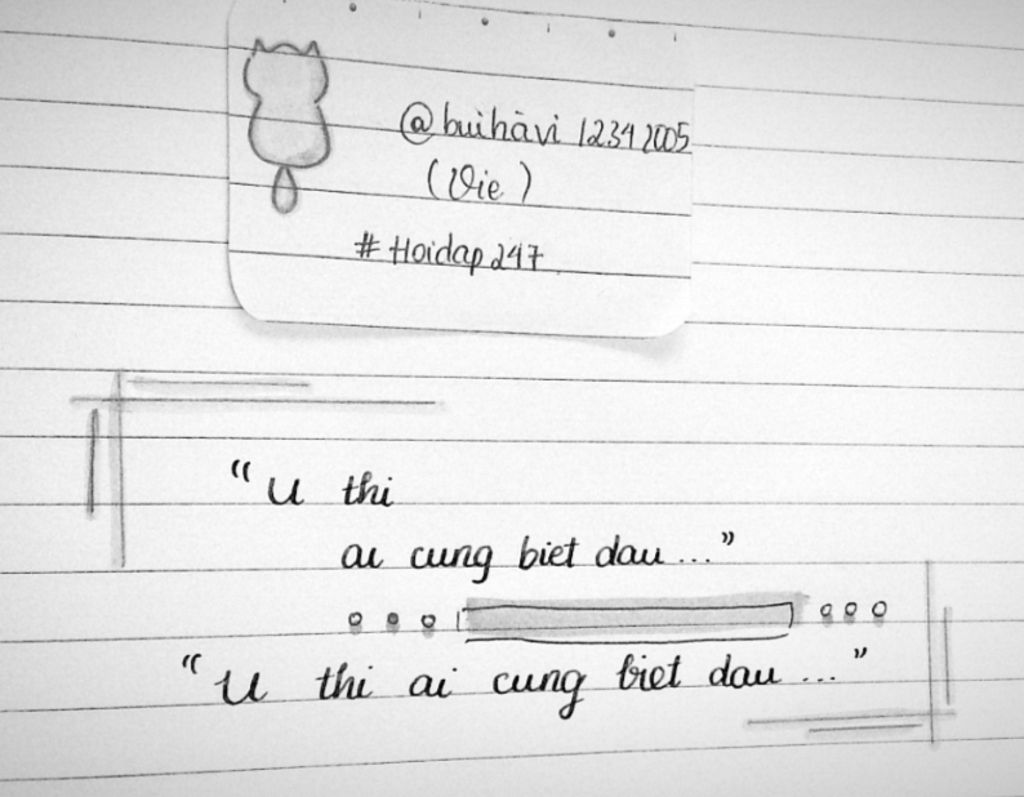 @buihàvi 12342005
(Vie)
#Hoidap247
"U thi
ai cung biet dau..."
"U thi ai cung biet dau..."